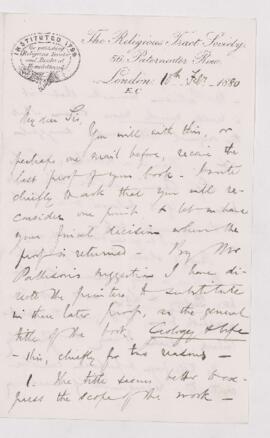 INSTITUTED 1799
The Religious Tract Society,
56, Paternoster Row,
London 18th Feb. 1880
E.C.
My dear Sir,
You will with this, or
perhaps one mail before, receive the
last proof of your book. I write
chiefly to ask that you will re-
consider one point & let me have
your final decision when the
proof is returned - By Mr
Pattison's suggestion I have di-
rected the printers to substitute
in their later proof, as the general
title of the book, Geology & Life
- this, chiefly for two reasons -
1. The title seems better to ex-
press the scope of the work -